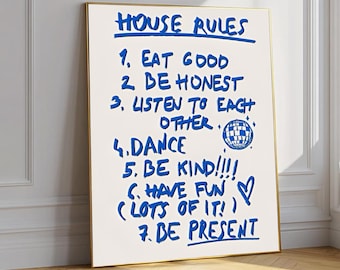 HOUSE RULES
1. EAT GOOD
2 BE HONEST
3. LISTEN TO EACH
OTHER
4. DANCE
5. BE KIND!!!!
6. HAVE FUN
(LOTS OF IT!)
7. BE PRESENT